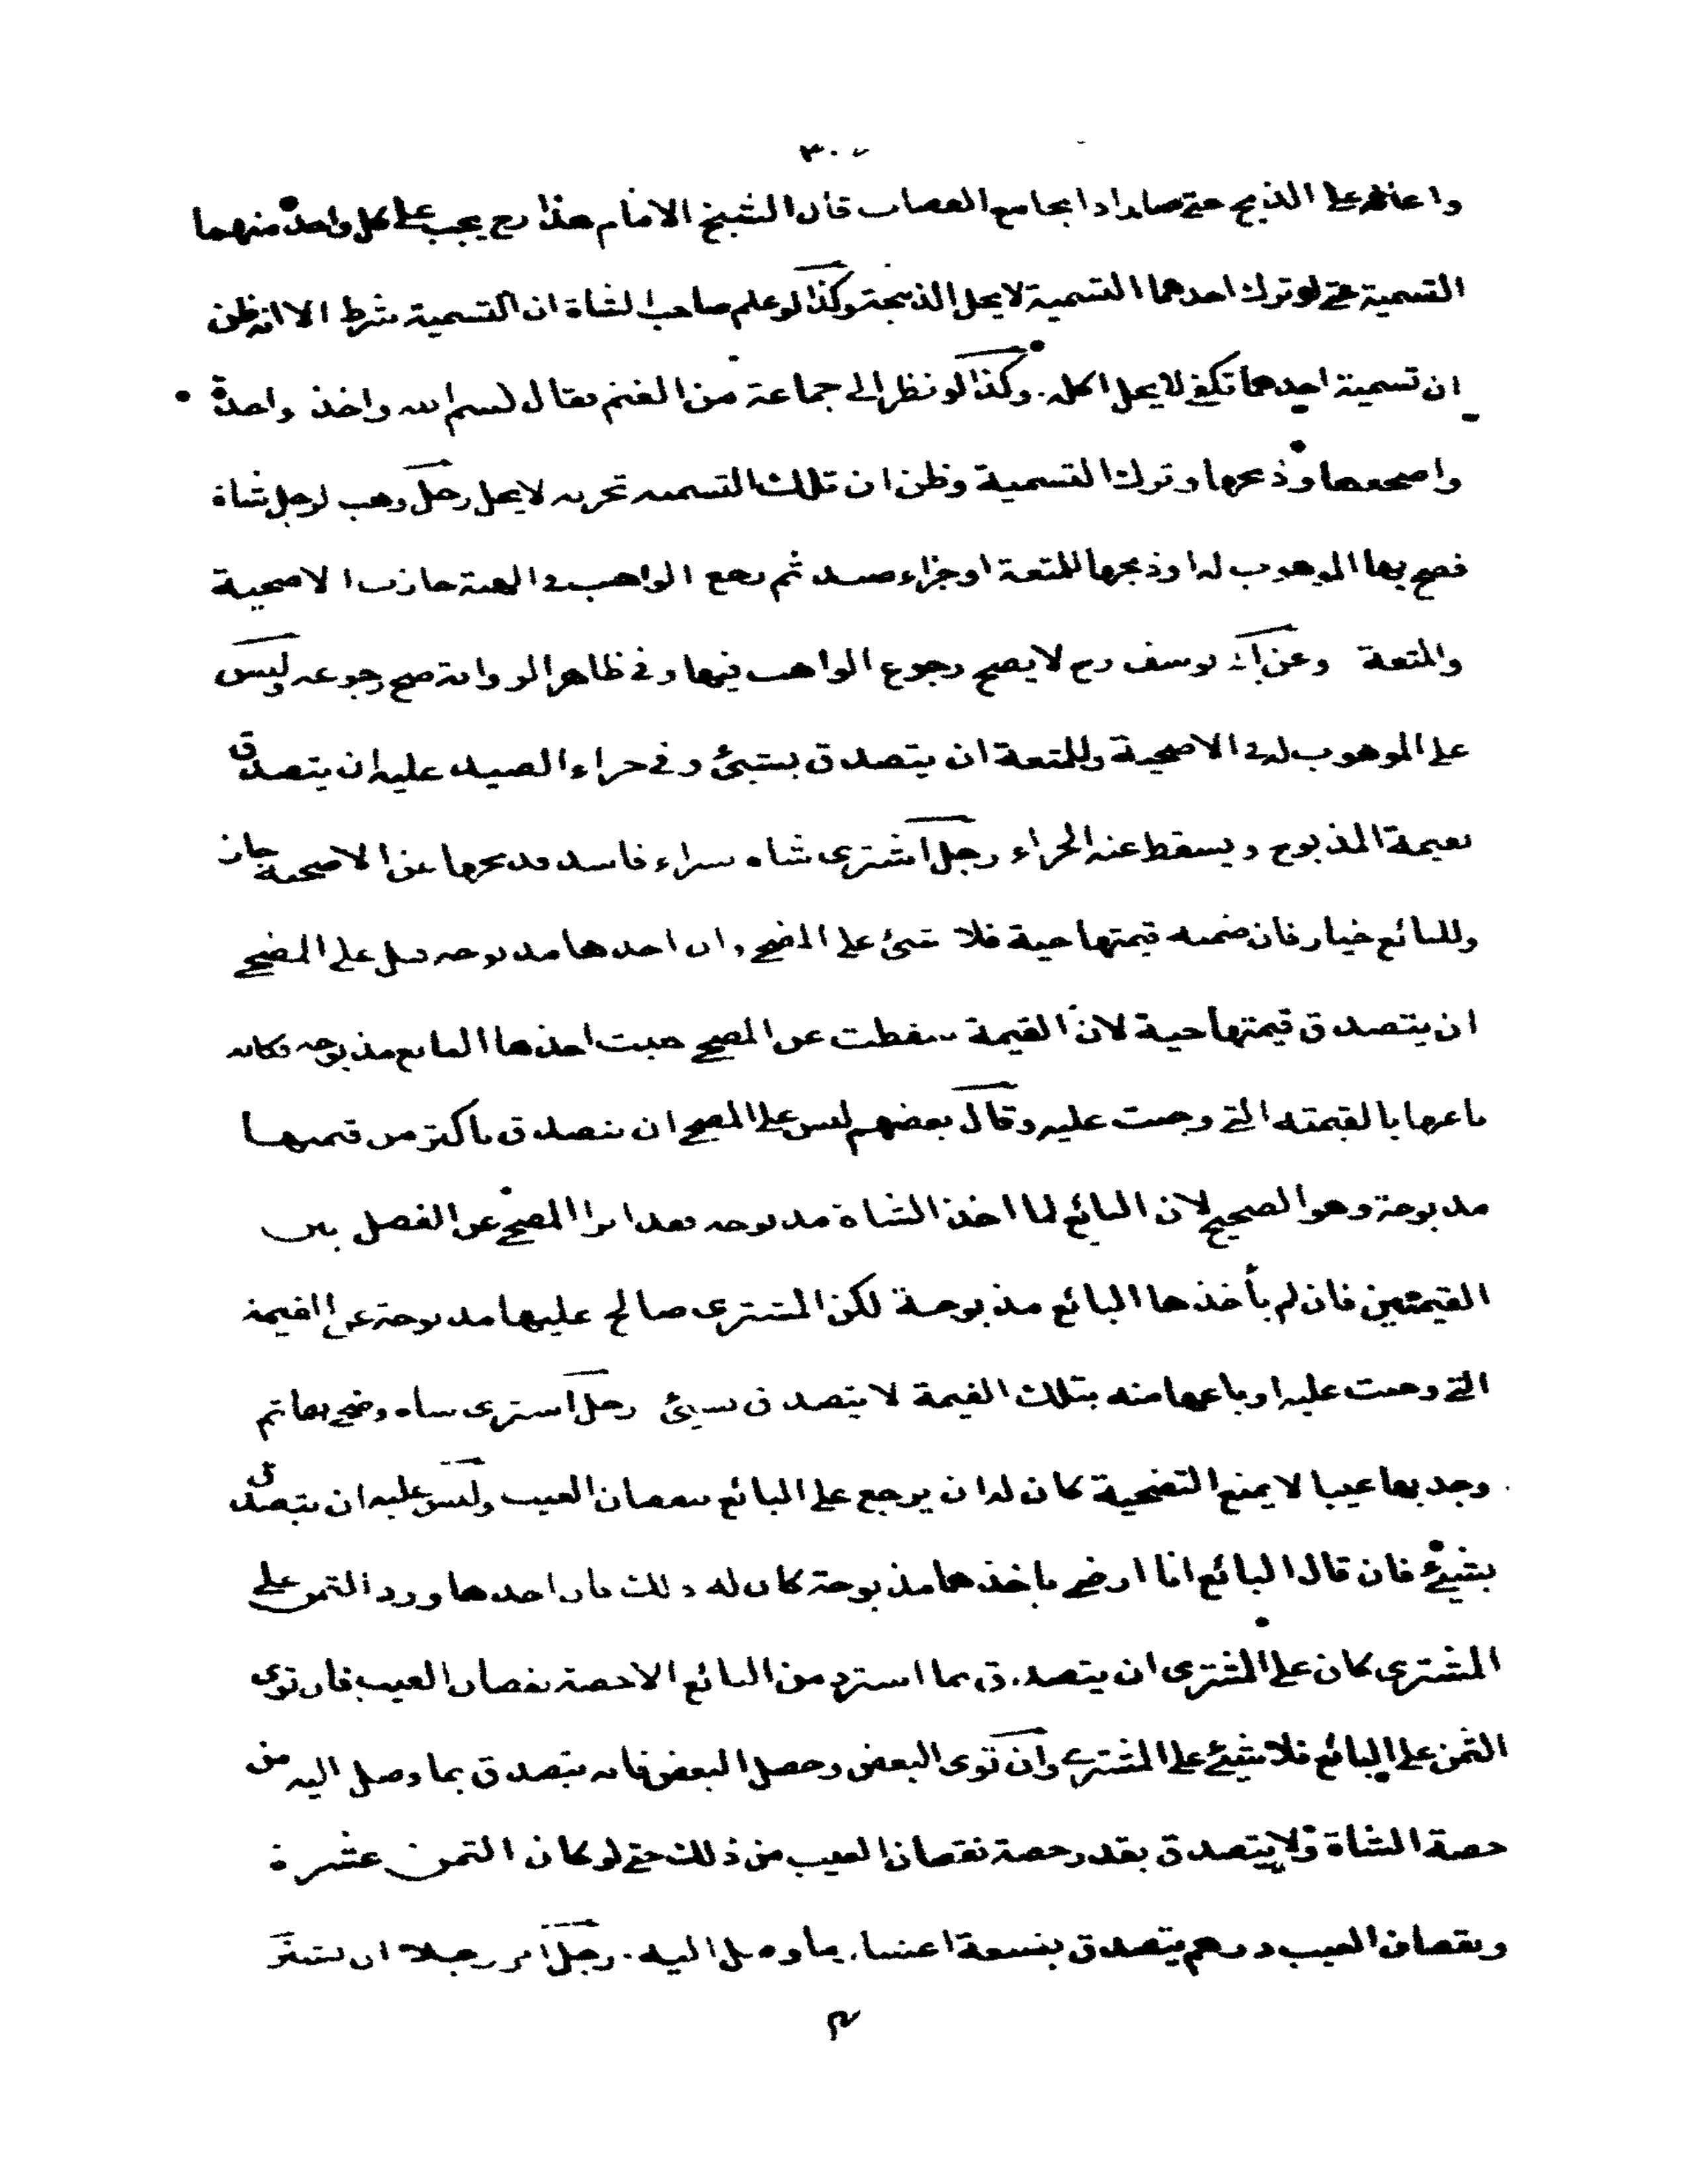 ٣٠٧
واعانه على الذبح حتى صار ذابحا مع القصاب قال الشيخ الامام هذا رح يجب على كل واحدة منهما
التسمية حتى لو ترك احدهما التسمية لا يحل الذبيحة وكذا لو علم صاحب الشاة ان التسمية شرط الا انه ظن
ان تسمية احدهما تكفي لا يحل اكله. وكذا لو نظر الى جماعة من الغنم فقال بسم الله واخذ واحدة
واضجعها وذبحها وترك التسمية وظن ان تلك التسمية تجزيه لا يحل رجل وهب لرجل شاة
فضحى بها الموهوب له او ذبحها للمتعة او جزاء صيد ثم رجع الواهب في الهبة جازت الاضحية
والمتعة وعن ابي يوسف رح لا يصح رجوع الواهب فيها وفي ظاهر الرواية صح رجوعه وليس
على الموهوب له في الاضحية وللمتعة ان يتصدق بشئ وفي جزاء الصيد عليه ان يتصدق
بقيمة المذبوح ويسقط عنه الجزاء رجل اشترى شاة شراء فاسد فذبحها عن الاضحية جاز
وللبائع خيار فان ضمنه قيمتها حية فلا شئ على المضحي وان اخذها مذبوحة قيل على المضحي
ان يتصدق قيمتها حية لان القيمة سقطت عن المضحي حيث اخذها البائع مذبوحة فكانه
باعها بالقيمته التي وجبت عليه وقال بعضهم ليس على المضحي ان يتصدق باكثر من قيمتها
مذبوحة وهو الصحيح لان البائع لما اخذ الشاة مذبوحة فقد ابرا المضحي عن الفضل بين
القيمتين فان لم يأخذها البائع مذبوحة لكن المشترى صالح عليها مذبوحة عن القيمة
التي وجبت عليه او باعها منه بتلك القيمة لا يتصدق بشئ رجل اشترى شاة وضحى بها ثم
وجد بها عيبا لا يمنع التضحية كان له ان يرجع على البائع بنقصان العيب وليس عليه ان يتصدق
بشيئ فان قال البائع انا ارضى باخذها مذبوحة كان له ذلك فان اخذها ورد الثمن على
المشترى كان على المشترى ان يتصدق بما استرد من البائع الا حصة نقصان العيب فان توى
الثمن على البائع فلا شيئ على المشترى وان توى البعض وحصل البعض فانه يتصدق بما وصل اليه من
حصة الشاة ولا يتصدق بقدر حصة نقصان العيب من ذلك حتى لو كان الثمن عشرة
ونقصان العيب درهم يتصدق بتسعة اعشار ما وصل اليه. رجل امر رجلا ان يشتر